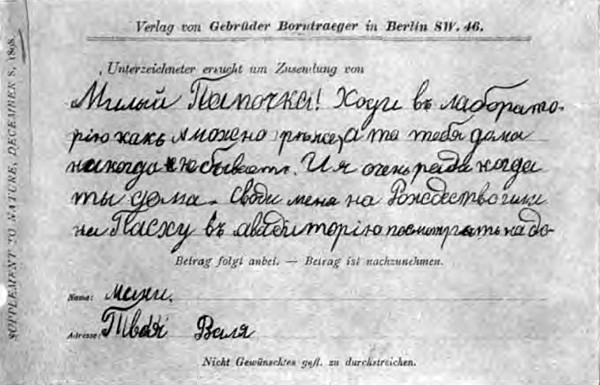 Verlag von Gebrüder Borntraeger in Berlin SW. 46.
SUPPLEMENT TO NATURE, DECEMBER 8, 1898.
Unterzeichneter ersucht um Zusendung von
Милый Папочка! Ходи въ лаборато-
рію какъ можно рѣже, а то тебя дома
никогда не бываетъ. И я очень рада когда
ты дома. Своди меня на Рождество или
на Пасху въ авадиторію посмотрѣть на до-
Betrag folgt anbei. — Betrag ist nachzunehmen.
Name:
Adresse: Твоя Валя
Nicht Gewünschtes gefl. zu durchstreichen.